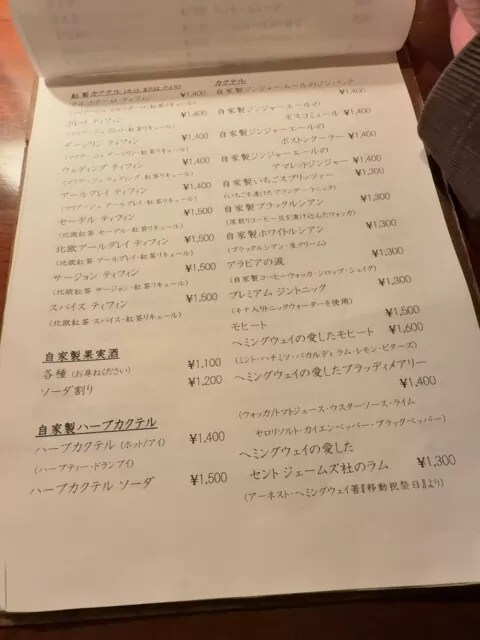 紅製カクテル
ティフィン ¥1,400
ボルドー ティフィン ¥1,400
ダージリン ティフィン ¥1,400
ウェディング ティフィン ¥1,400
アールグレイ ティフィン ¥1,400
(マリアージュ アールグレイ・紅茶リキュール)
セーデル ティフィン ¥1,500
(北欧紅茶 セーデル・紅茶リキュール)
北欧アールグレイ ティフィン ¥1,500
(北欧紅茶 アールグレイ・紅茶リキュール)
サージョン ティフィン ¥1,500
(北欧紅茶 サージョン・紅茶リキュール)
スパイス ティフィン ¥1,500
(北欧紅茶 スパイス・紅茶リキュール)
自家製果実酒
各種 (お尋ねください) ¥1,100
ソーダ割り ¥1,200
自家製ハーブカクテル
ハーブカクテル (ホット/アイ) ¥1,400
(ハーブティー・ドランブイ)
ハーブカクテル ソーダ ¥1,500
カクテル
自家製ジンジャーエールの ¥1,400
自家製ジンジャーエールの
モスコミュール ¥1,400
自家製ジンジャーエールの
ボストンクーラー ¥1,400
自家製ジンジャーエールの
アマレットジンジャー ¥1,400
自家製いちごスプリッツァー ¥1,300
(いちごを漬けたブランデー・トニック)
自家製ブラックルシアン ¥1,300
(深煎りコーヒー豆を漬け込んだウォッカ)
自家製ホワイトルシアン ¥1,300
(ブラックルシアン・生クリーム)
アラビアの涙 ¥1,300
(自家製コーヒーウォッカ・シロップ・シェイク)
プレミアム ジントニック ¥1,300
(キナ入りトニックウォーターを使用)
モヒート ¥1,500
ヘミングウェイの愛したモヒート ¥1,600
(ミント・ハチミツ・バカルディ ラム・レモン・ビターズ)
ヘミングウェイの愛したブラッディメアリー
¥1,400
(ウォッカ/トマトジュース・ウスターソース・ライム
セロリソルト・カイエンペッパー・ブラックペッパー)
ヘミングウェイの愛した
セント ジェームズ社のラム ¥1,300
(アーネスト・ヘミングウェイ著『移動祝祭日』より)